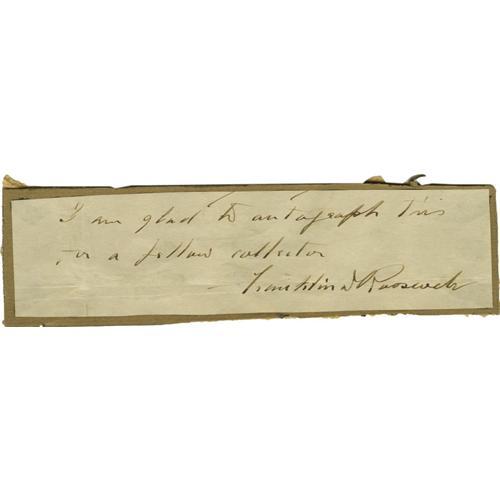 I am glad to autograph this
for a fellow collector
Franklin D Roosevelt